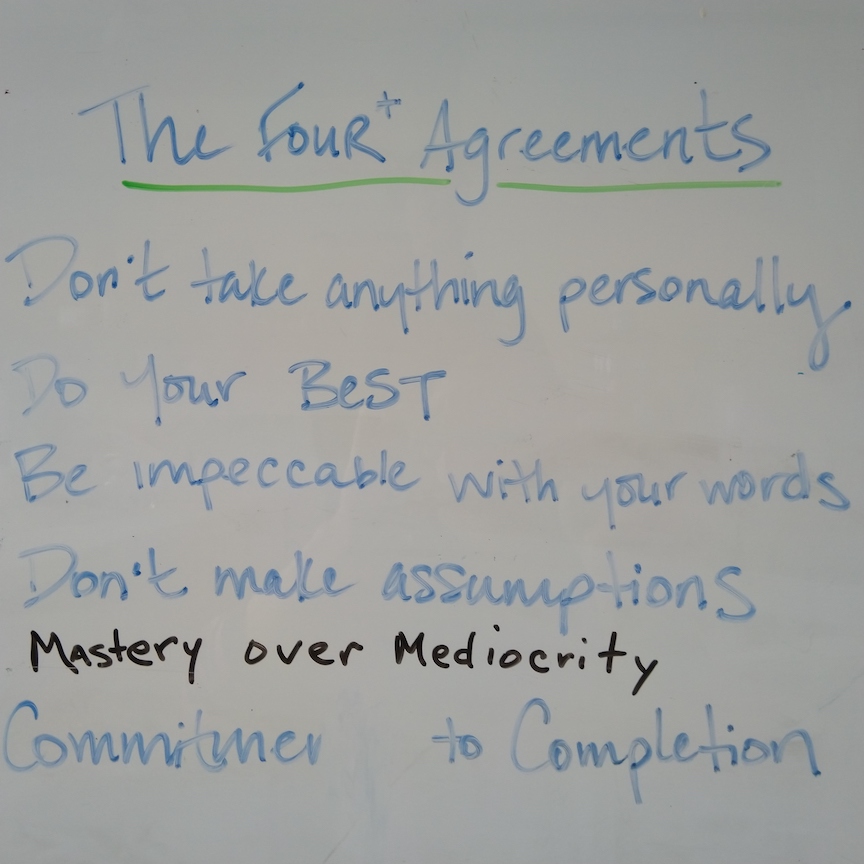 The Four+ Agreements
Don't take anything personally.
Do Your BEST
Be impeccable with your words
Don't make assumptions
Mastery over Mediocrity
Commitmen to Completion